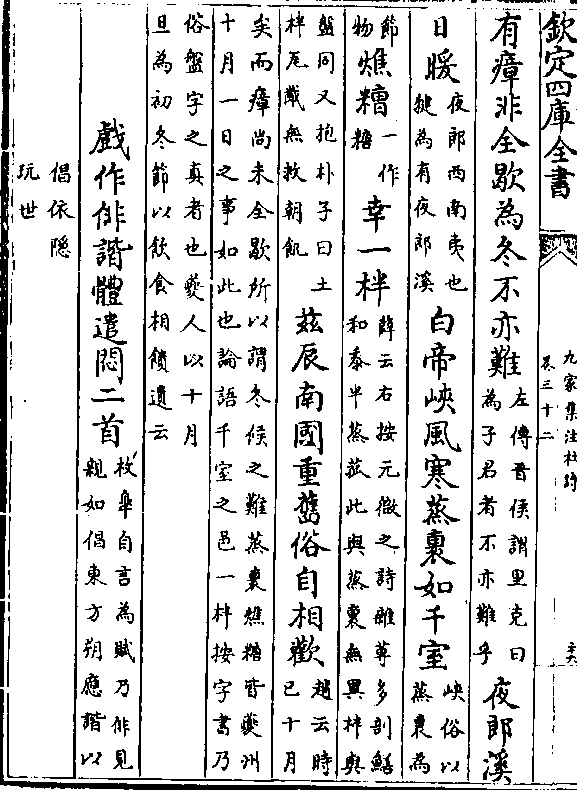 欽定四庫全書
九家集注杜詩
卷三十二
有瘴非全歇為冬不亦難左傳晉侯謂里克曰為子君者不亦難乎夜郎溪
日暖夜郎西南夷也犍為有夜郎溪白帝峽風寒蒸裹如千室峽俗以蒸裹為
節物燋糟一作糖幸一柈薛云右按元微之詩雖蓴多剖鱔和黍半蒸菰此與蒸裹無異柈與
盤同又抱朴子曰土柈瓦胾無救朝飢茲辰南國重舊俗自相歡趙云時已十月
矣而瘴尚未全歇所以謂冬候之難蒸裹燋糖皆夔州十月一日之事如此也論語千室之邑一柈按字書乃
俗盤字之真者也夔人以十月旦為初冬節以飲食相饋遺云
戲作俳諧體遣悶二首枚皋自言為賦乃俳見親如倡東方朔應諧以
倡依隱玩世